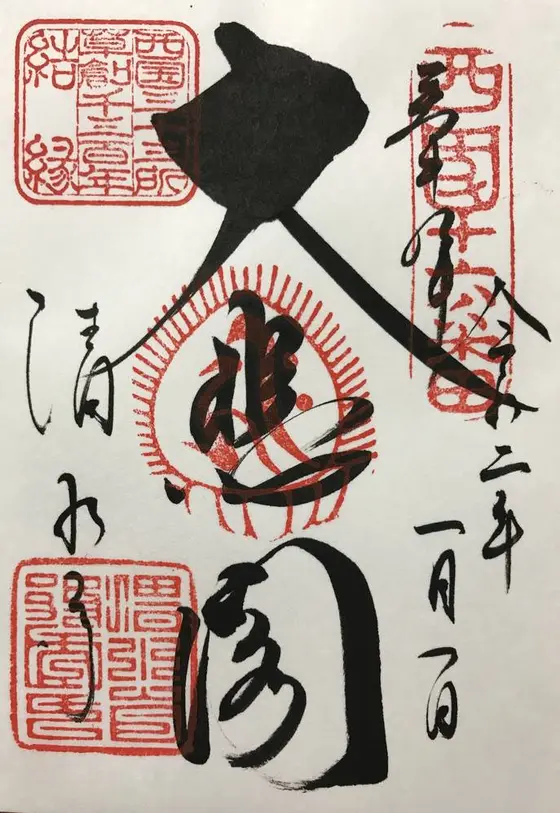 西国十六番
奉拝
令和二年
一月一日
大悲閣
清水寺
西国三十三所
草創千三百年
結縁